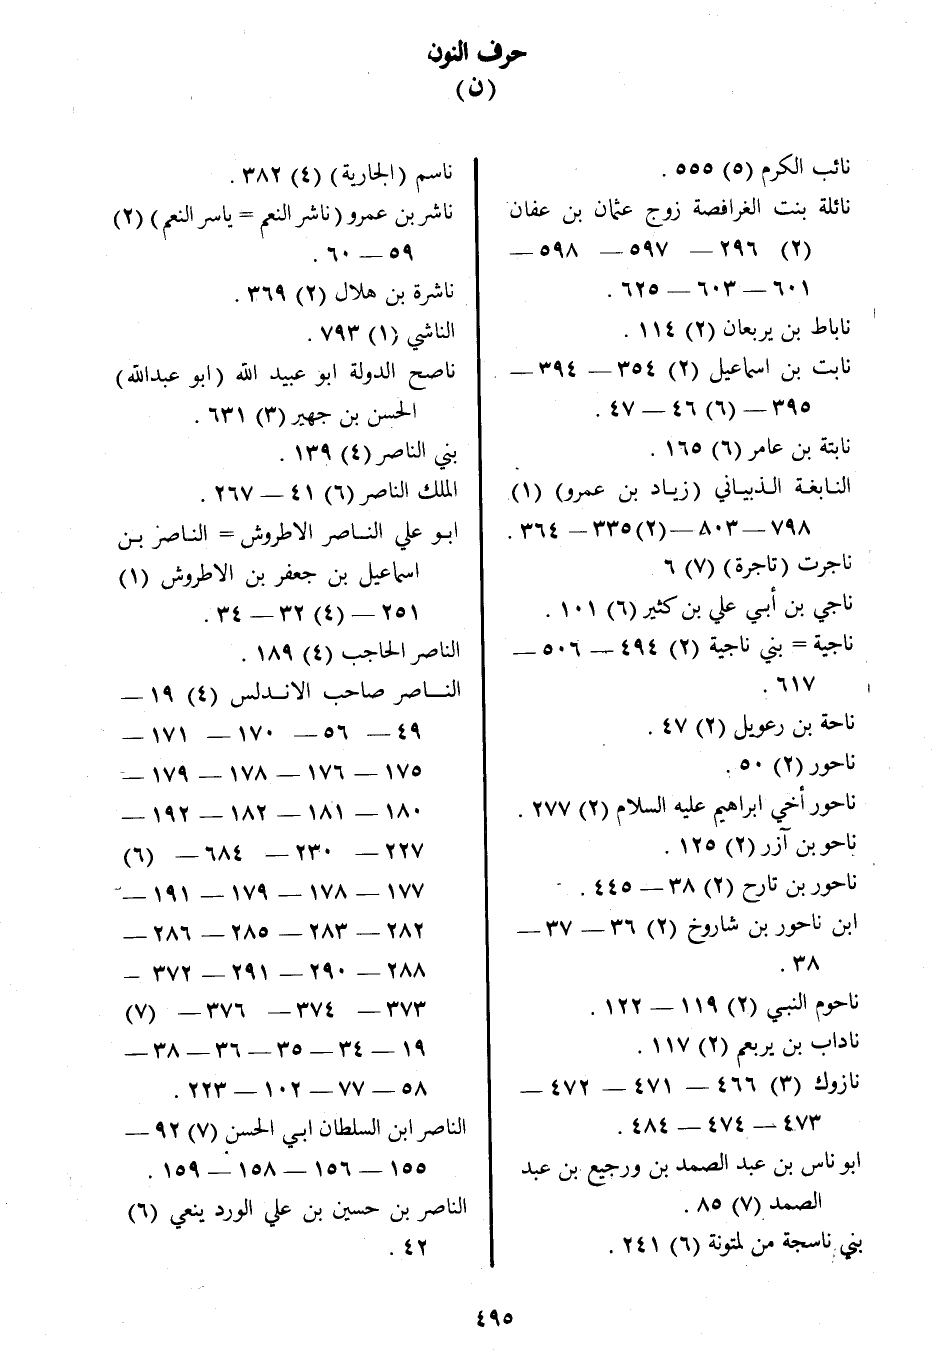 حرف النون
(ن)
نائب الكرم (٥) ٥٥٥ .
نائلة بنت الغرافصة زوج عثمان بن عفان
(٢) ٢٩٦ — ٥٩٧ — ٥٩٨ —
٦٠١ — ٦٠٣ — ٦٢٥ .
ناباط بن يربعان (٢) ١١٤ .
نابت بن اسماعيل (٢) ٣٥٤ — ٣٩٤ —
٣٩٥ — (٦) ٤٦ — ٤٧ .
نابتة بن عامر (٦) ١٦٥ .
النابغة الذبياني (زياد بن عمرو) (١)
٧٩٨ — ٨٠٣ — (٢) ٣٣٥ — ٣٦٤ .
ناجرت (تاجرة) (٧) ٦
ناجي بن أبي علي بن كثير (٦) ١٠١ .
ناجية = بني ناجية (٢) ٤٩٤ — ٥٠٦ —
٦١٧ .
ناحة بن رعويل (٢) ٤٧ .
ناحور (٢) ٥٠ .
ناحور أخي ابراهيم عليه السلام (٢) ٢٧٧ .
ناحو بن آزر (٢) ١٢٥ .
ناحور بن تارح (٢) ٣٨ — ٤٤٥ .
ابن ناحور بن شاروخ (٢) ٣٦ — ٣٧ —
٣٨ .
ناحوم النبي (٢) ١١٩ — ١٢٢ .
ناداب بن يربعم (٢) ١١٧ .
نازوك (٣) ٤٦٦ — ٤٧١ — ٤٧٢ —
٤٧٣ — ٤٧٤ — ٤٨٤ .
ابو ناس بن عبد الصمد بن ورجيع بن عبد
الصمد (٧) ٨٥ .
بني ناسجة من لمتونة (٦) ٢٤١ .
ناسم (الجارية) (٤) ٣٨٢ .
ناشر بن عمرو (ناشر النعم = ياسر النعم) (٢)
٥٩ — ٦٠ .
ناشرة بن هلال (٢) ٣٦٩ .
الناشي (١) ٧٩٣ .
ناصح الدولة ابو عبيد الله (ابو عبدالله)
الحسن بن جهير (٣) ٦٣١ .
بني الناصر (٤) ١٣٩ .
الملك الناصر (٦) ٤١ — ٢٦٧ .
ابو علي الناصر الاطروش = الناصر بن
اسماعيل بن جعفر بن الاطروش (١)
٢٥١ — (٤) ٣٢ — ٣٤ .
الناصر الحاجب (٤) ١٨٩ .
الناصر صاحب الاندلس (٤) ١٩ —
٤٩ — ٥٦ — ١٧٠ — ١٧١ —
١٧٥ — ١٧٦ — ١٧٨ — ١٧٩ —
١٨٠ — ١٨١ — ١٨٢ — ١٩٢ —
٢٢٧ — ٢٣٠ — ٦٨٤ — (٦)
١٧٧ — ١٧٨ — ١٧٩ — ١٩١ —
٢٨٢ — ٢٨٣ — ٢٨٥ — ٢٨٦ —
٢٨٨ — ٢٩٠ — ٢٩١ — ٣٧٢ —
٣٧٣ — ٣٧٤ — ٣٧٦ — (٧)
١٩ — ٣٤ — ٣٥ — ٣٦ — ٣٨ —
٥٨ — ٧٧ — ١٠٢ — ٢٢٣ .
الناصر ابن السلطان ابي الحسن (٧) ٩٢ —
١٥٥ — ١٥٦ — ١٥٨ — ١٥٩ .
الناصر بن حسين بن علي الورد ينعي (٦)
٤٢ .
٤٩٥